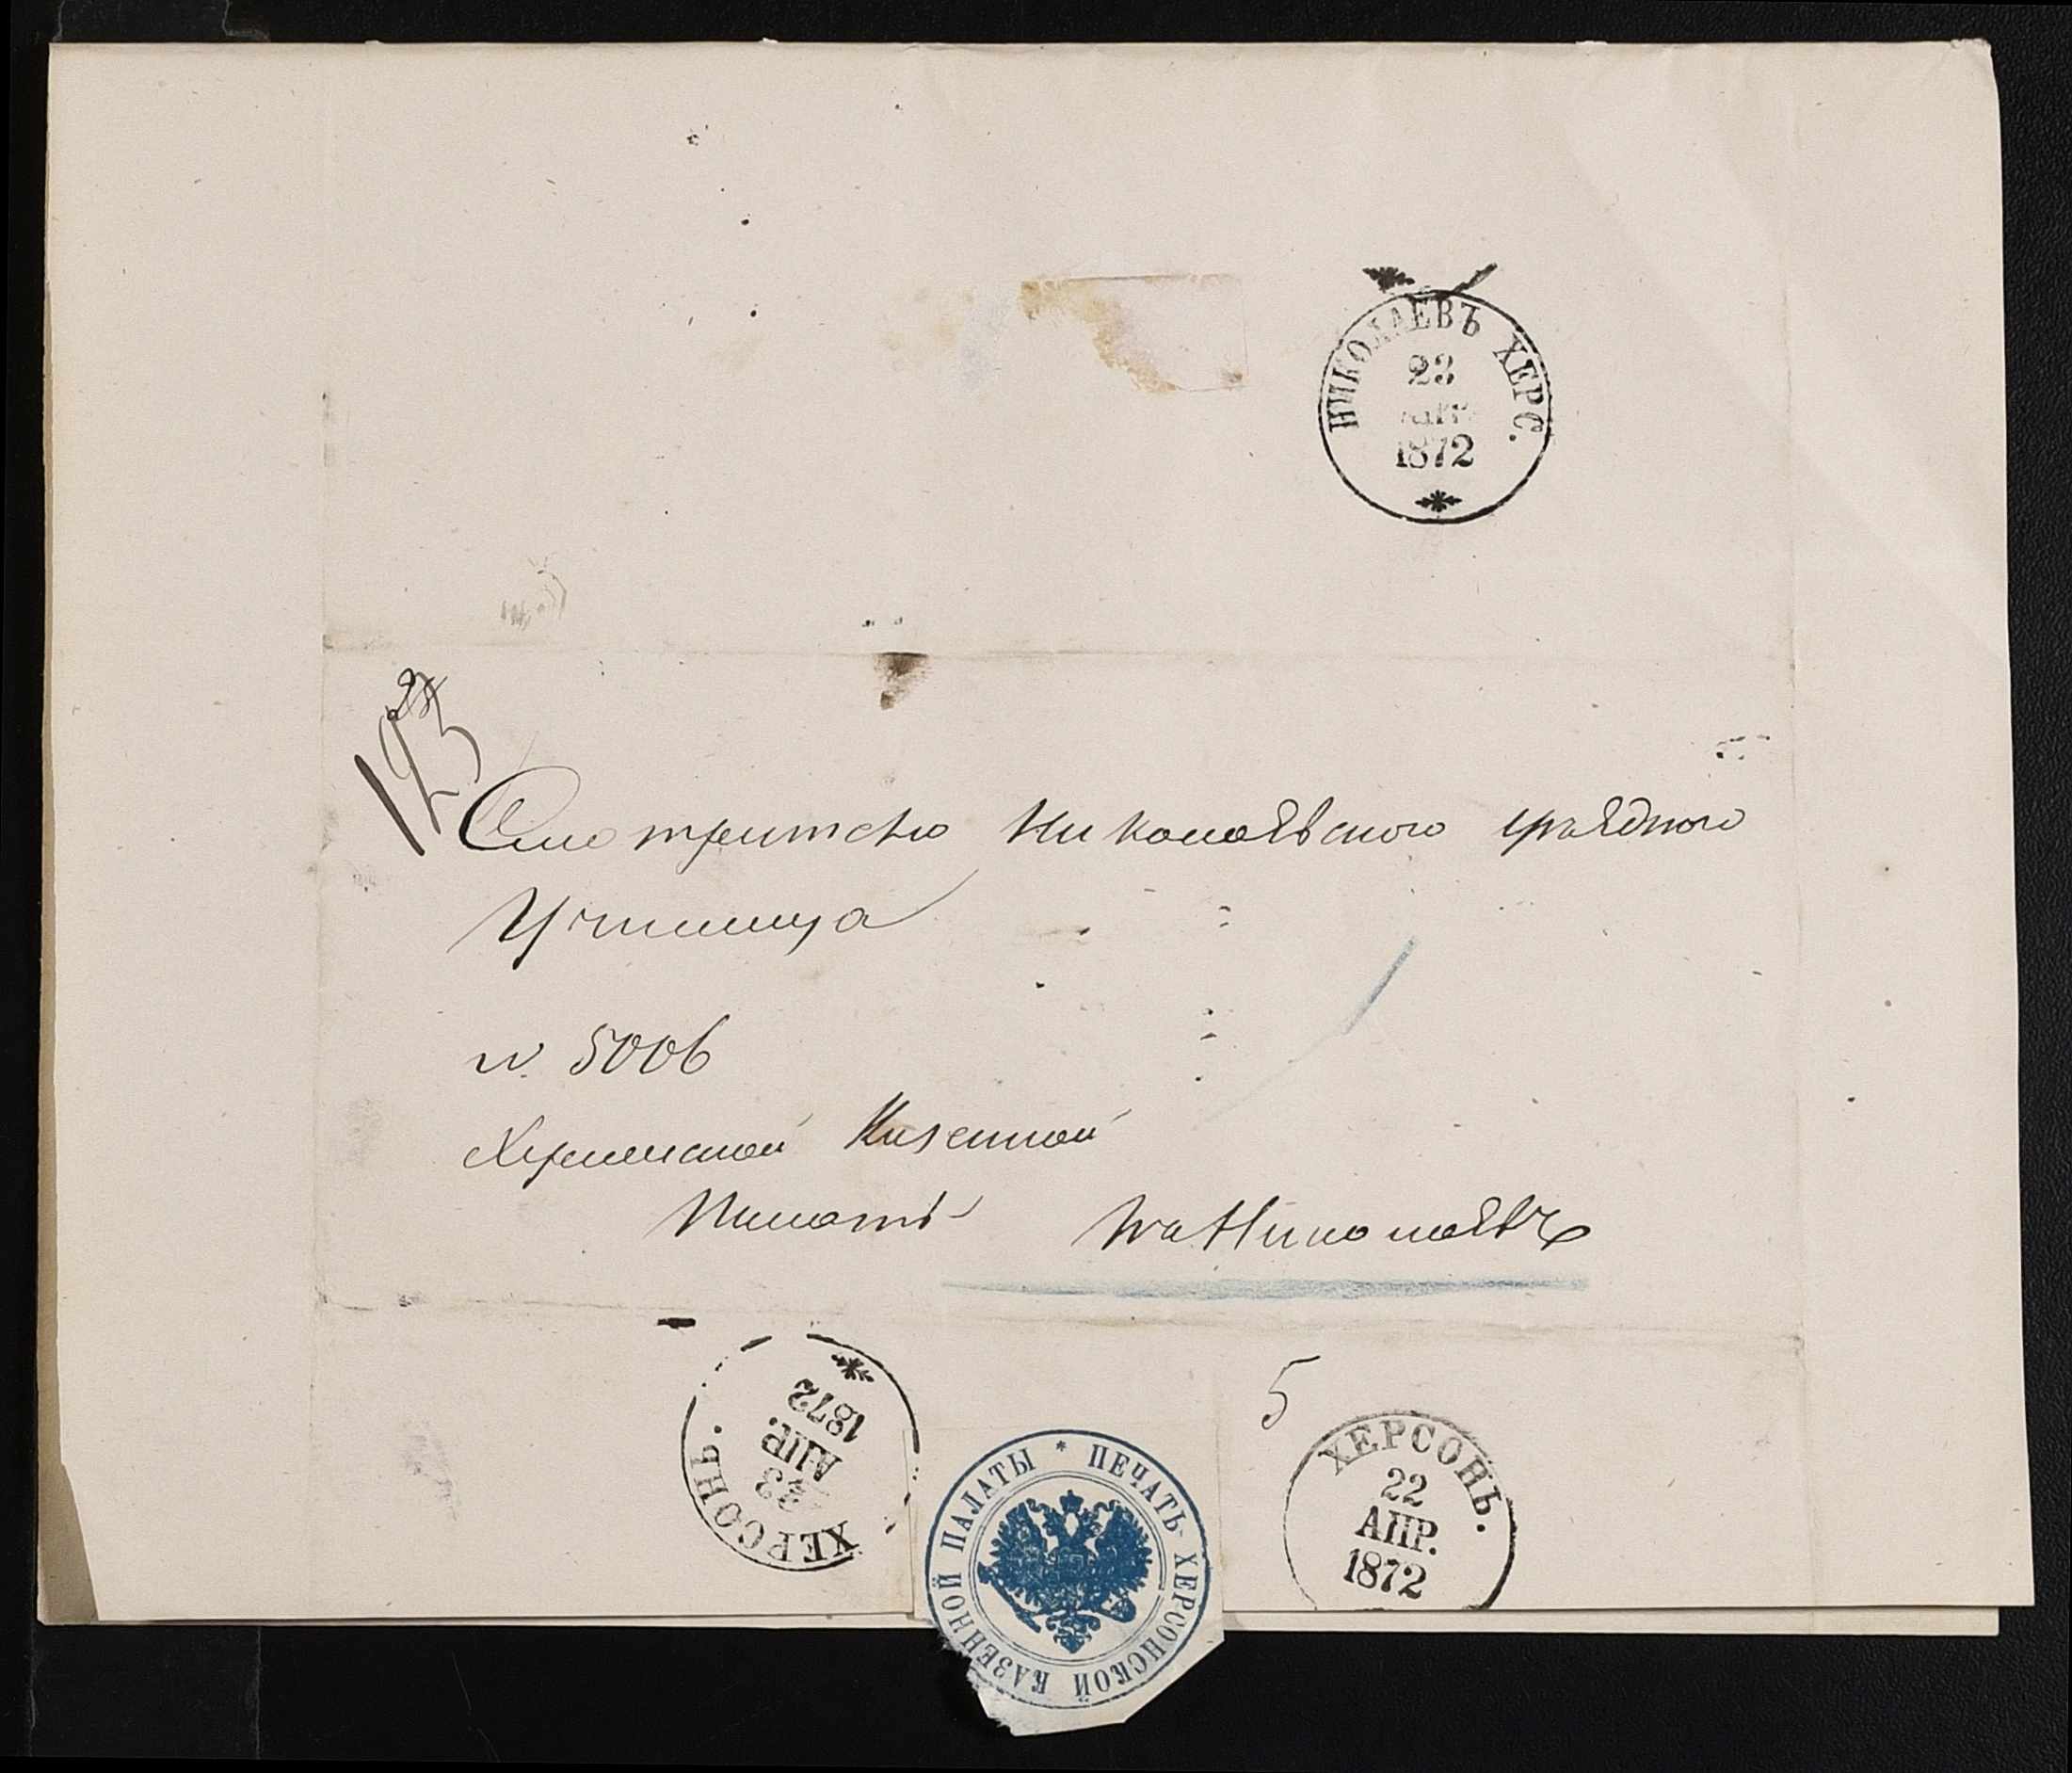 НИКОЛАЕВЪ ХЕРС.
23
АПР.
1872
Смотрителю Николаевского уѣздного
Училища
N. 5006
Херсонской Казенной
Палаты
в г. Николаевъ
ХЕРСОНЪ.
23
АПР.
1872
5
ПЕЧАТЬ ХЕРСОНСКОЙ КАЗЕННОЙ ПАЛАТЫ
ХЕРСОНЪ.
22
АПР.
1872